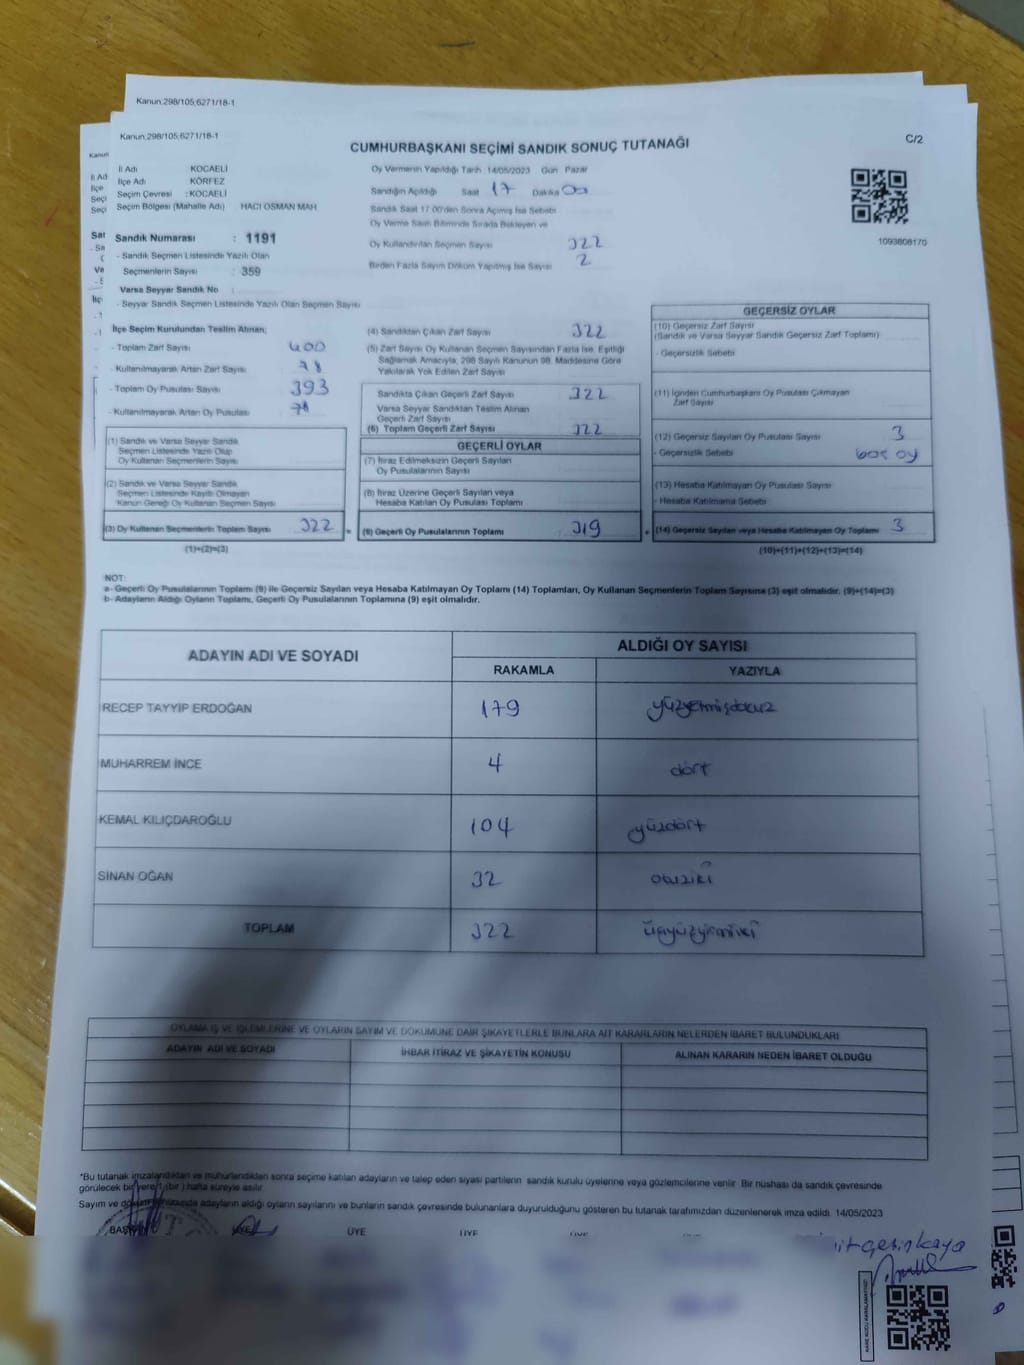 Kanun;298/105;6271/18-1
Kanun;298/105;6271/18-1
C/2
CUMHURBAŞKANI SEÇİMİ SANDIK SONUÇ TUTANAĞI
İl Adı KOCAELİ
İlçe Adı KÖRFEZ
Seçim Çevresi : KOCAELİ
Seçim Bölgesi (Mahalle Adı) HACI OSMAN MAH
Sandık Numarası : 1191
- Sandık Seçmen Listesinde Yazılı Olan
Seçmenlerin Sayısı : 359
Varsa Seyyar Sandık No :
- Seyyar Sandık Seçmen Listesinde Yazılı Olan Seçmen Sayısı
Oy Vermenin Yapıldığı Tarih 14/05/2023 Gün Pazar
Sandığın Açıldığı Saat 17 Dakika 00
Sandık Saat 17.00'den Sonra Açılmış İse Sebebi
Oy Verme Saati Bitiminde Sırada Bekleyen ve
Oy Kullandırılan Seçmen Sayısı 322
Birden Fazla Sayım Döküm Yapılmış İse Sayısı 2
1093808170
İlçe Seçim Kurulundan Teslim Alınan;
- Toplam Zarf Sayısı 400
- Kullanılmayarak Artan Zarf Sayısı 78
- Toplam Oy Pusulası Sayısı 393
- Kullanılmayarak Artan Oy Pusulası
(1) Sandık ve Varsa Seyyar Sandık
Seçmen Listesinde Yazılı Olup
Oy Kullanan Seçmenlerin Sayısı
(2) Sandık ve Varsa Seyyar Sandık
Seçmen Listesinde Kayıtlı Olmayan
Kanun Gereği Oy Kullanan Seçmen Sayısı
(3) Oy Kullanan Seçmenlerin Toplam Sayısı 322 =
(1)+(2)=(3)
(4) Sandıktan Çıkan Zarf Sayısı 322
(5) Zarf Sayısı Oy Kullanan Seçmen Sayısından Fazla İse, Eşitliği
Sağlamak Amacıyla, 298 Sayılı Kanunun 98. Maddesine Göre
Yakılarak Yok Edilen Zarf Sayısı
Sandıkta Çıkan Geçerli Zarf Sayısı 322
Varsa Seyyar Sandıktan Teslim Alınan
Geçerli Zarf Sayısı
(6) Toplam Geçerli Zarf Sayısı 322
GEÇERLİ OYLAR
(7) İtiraz Edilmeksizin Geçerli Sayılan
Oy Pusulalarının Sayısı
(8) İtiraz Üzerine Geçerli Sayılan veya
Hesaba Katılan Oy Pusulası Toplamı
(9) Geçerli Oy Pusulalarının Toplamı : 319 +
GEÇERSİZ OYLAR
(10) Geçersiz Zarf Sayısı
(Sandık ve Varsa Seyyar Sandık Geçersiz Zarf Toplamı)
- Geçersizlik Sebebi
(11) İçinden Cumhurbaşkanı Oy Pusulası Çıkmayan
Zarf Sayısı
(12) Geçersiz Sayılan Oy Pusulası Sayısı 3
- Geçersizlik Sebebi boş oy
(13) Hesaba Katılmayan Oy Pusulası Sayısı
- Hesaba Katılmama Sebebi
(14) Geçersiz Sayılan veya Hesaba Katılmayan Oy Toplamı 3
(10)+(11)+(12)+(13)=(14)
NOT:
a- Geçerli Oy Pusulalarının Toplamı (9) ile Geçersiz Sayılan veya Hesaba Katılmayan Oy Toplamı (14) Toplamları, Oy Kullanan Seçmenlerin Toplam Sayısına (3) eşit olmalıdır. (9)+(14)=(3)
b- Adayların Aldığı Oyların Toplamı, Geçerli Oy Pusulalarının Toplamına (9) eşit olmalıdır.
ADAYIN ADI VE SOYADI
ALDIĞI OY SAYISI
RAKAMLA YAZIYLA
RECEP TAYYİP ERDOĞAN 179 yüzyetmişdokuz
MUHARREM İNCE 4 dört
KEMAL KILIÇDAROĞLU 104 yüzdört
SİNAN OĞAN 32 otuziki
TOPLAM 322 üçyüzyirmiiki
OYLAMA İŞ VE İŞLEMLERİNE VE OYLARIN SAYIM VE DÖKÜMÜNE DAİR ŞİKAYETLERLE BUNLARA AİT KARARLARIN NELERDEN İBARET BULUNDUKLARI
ADAYIN ADI VE SOYADI İHBAR İTİRAZ VE ŞİKAYETİN KONUSU ALINAN KARARIN NEDEN İBARET OLDUĞU
*Bu tutanak imzalandıktan ve mühürlendikten sonra seçime katılan adayların ve talep eden siyasi partilerin sandık kurulu üyelerine veya gözlemcilerine verilir. Bir nüshası da sandık çevresinde
görülecek bir yere 1 (bir) hafta süreyle asılır.
Sayım ve döküm sonucunda adayların aldığı oyların sayılarını ve bunların sandık çevresinde bulunanlara duyurulduğunu gösteren bu tutanak tarafımızdan düzenlenerek imza edildi. 14/05/2023
BAŞKAN ÜYE ÜYE ÜYE ÜYE